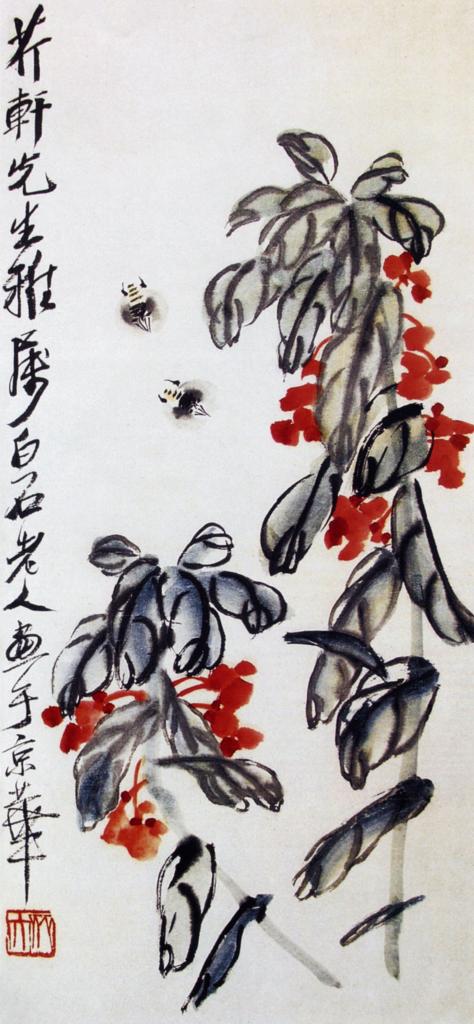 芥軒先生雅属白石老人画于京華